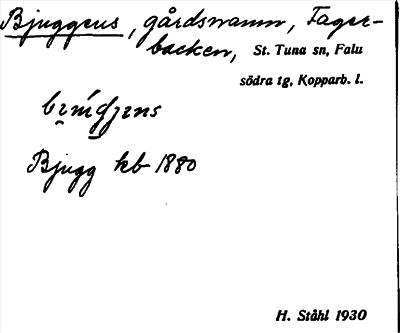 Bjuggens, gårdsnamn, Fager-
backen, St. Tuna sn, Falu
södra tg, Kopparb. l.
Bjugg kb 1880
H. Ståhl 1930